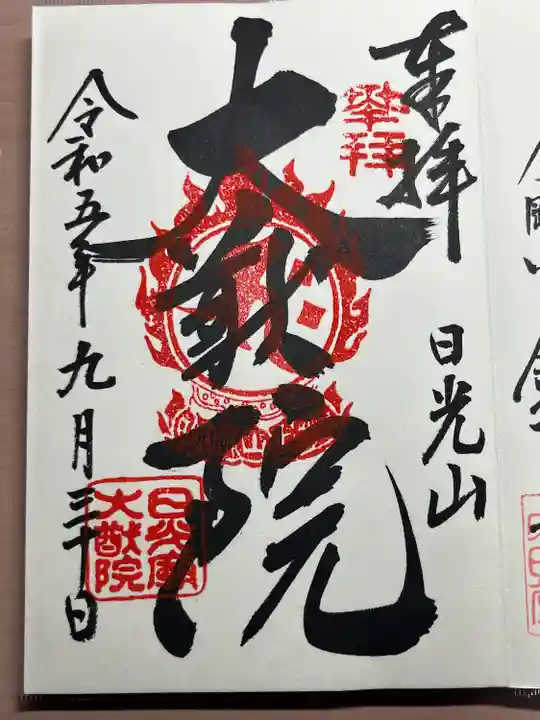 奉拝
日光山
奉拝
大猷院
令和五年九月三十日
日光廟
大猷院